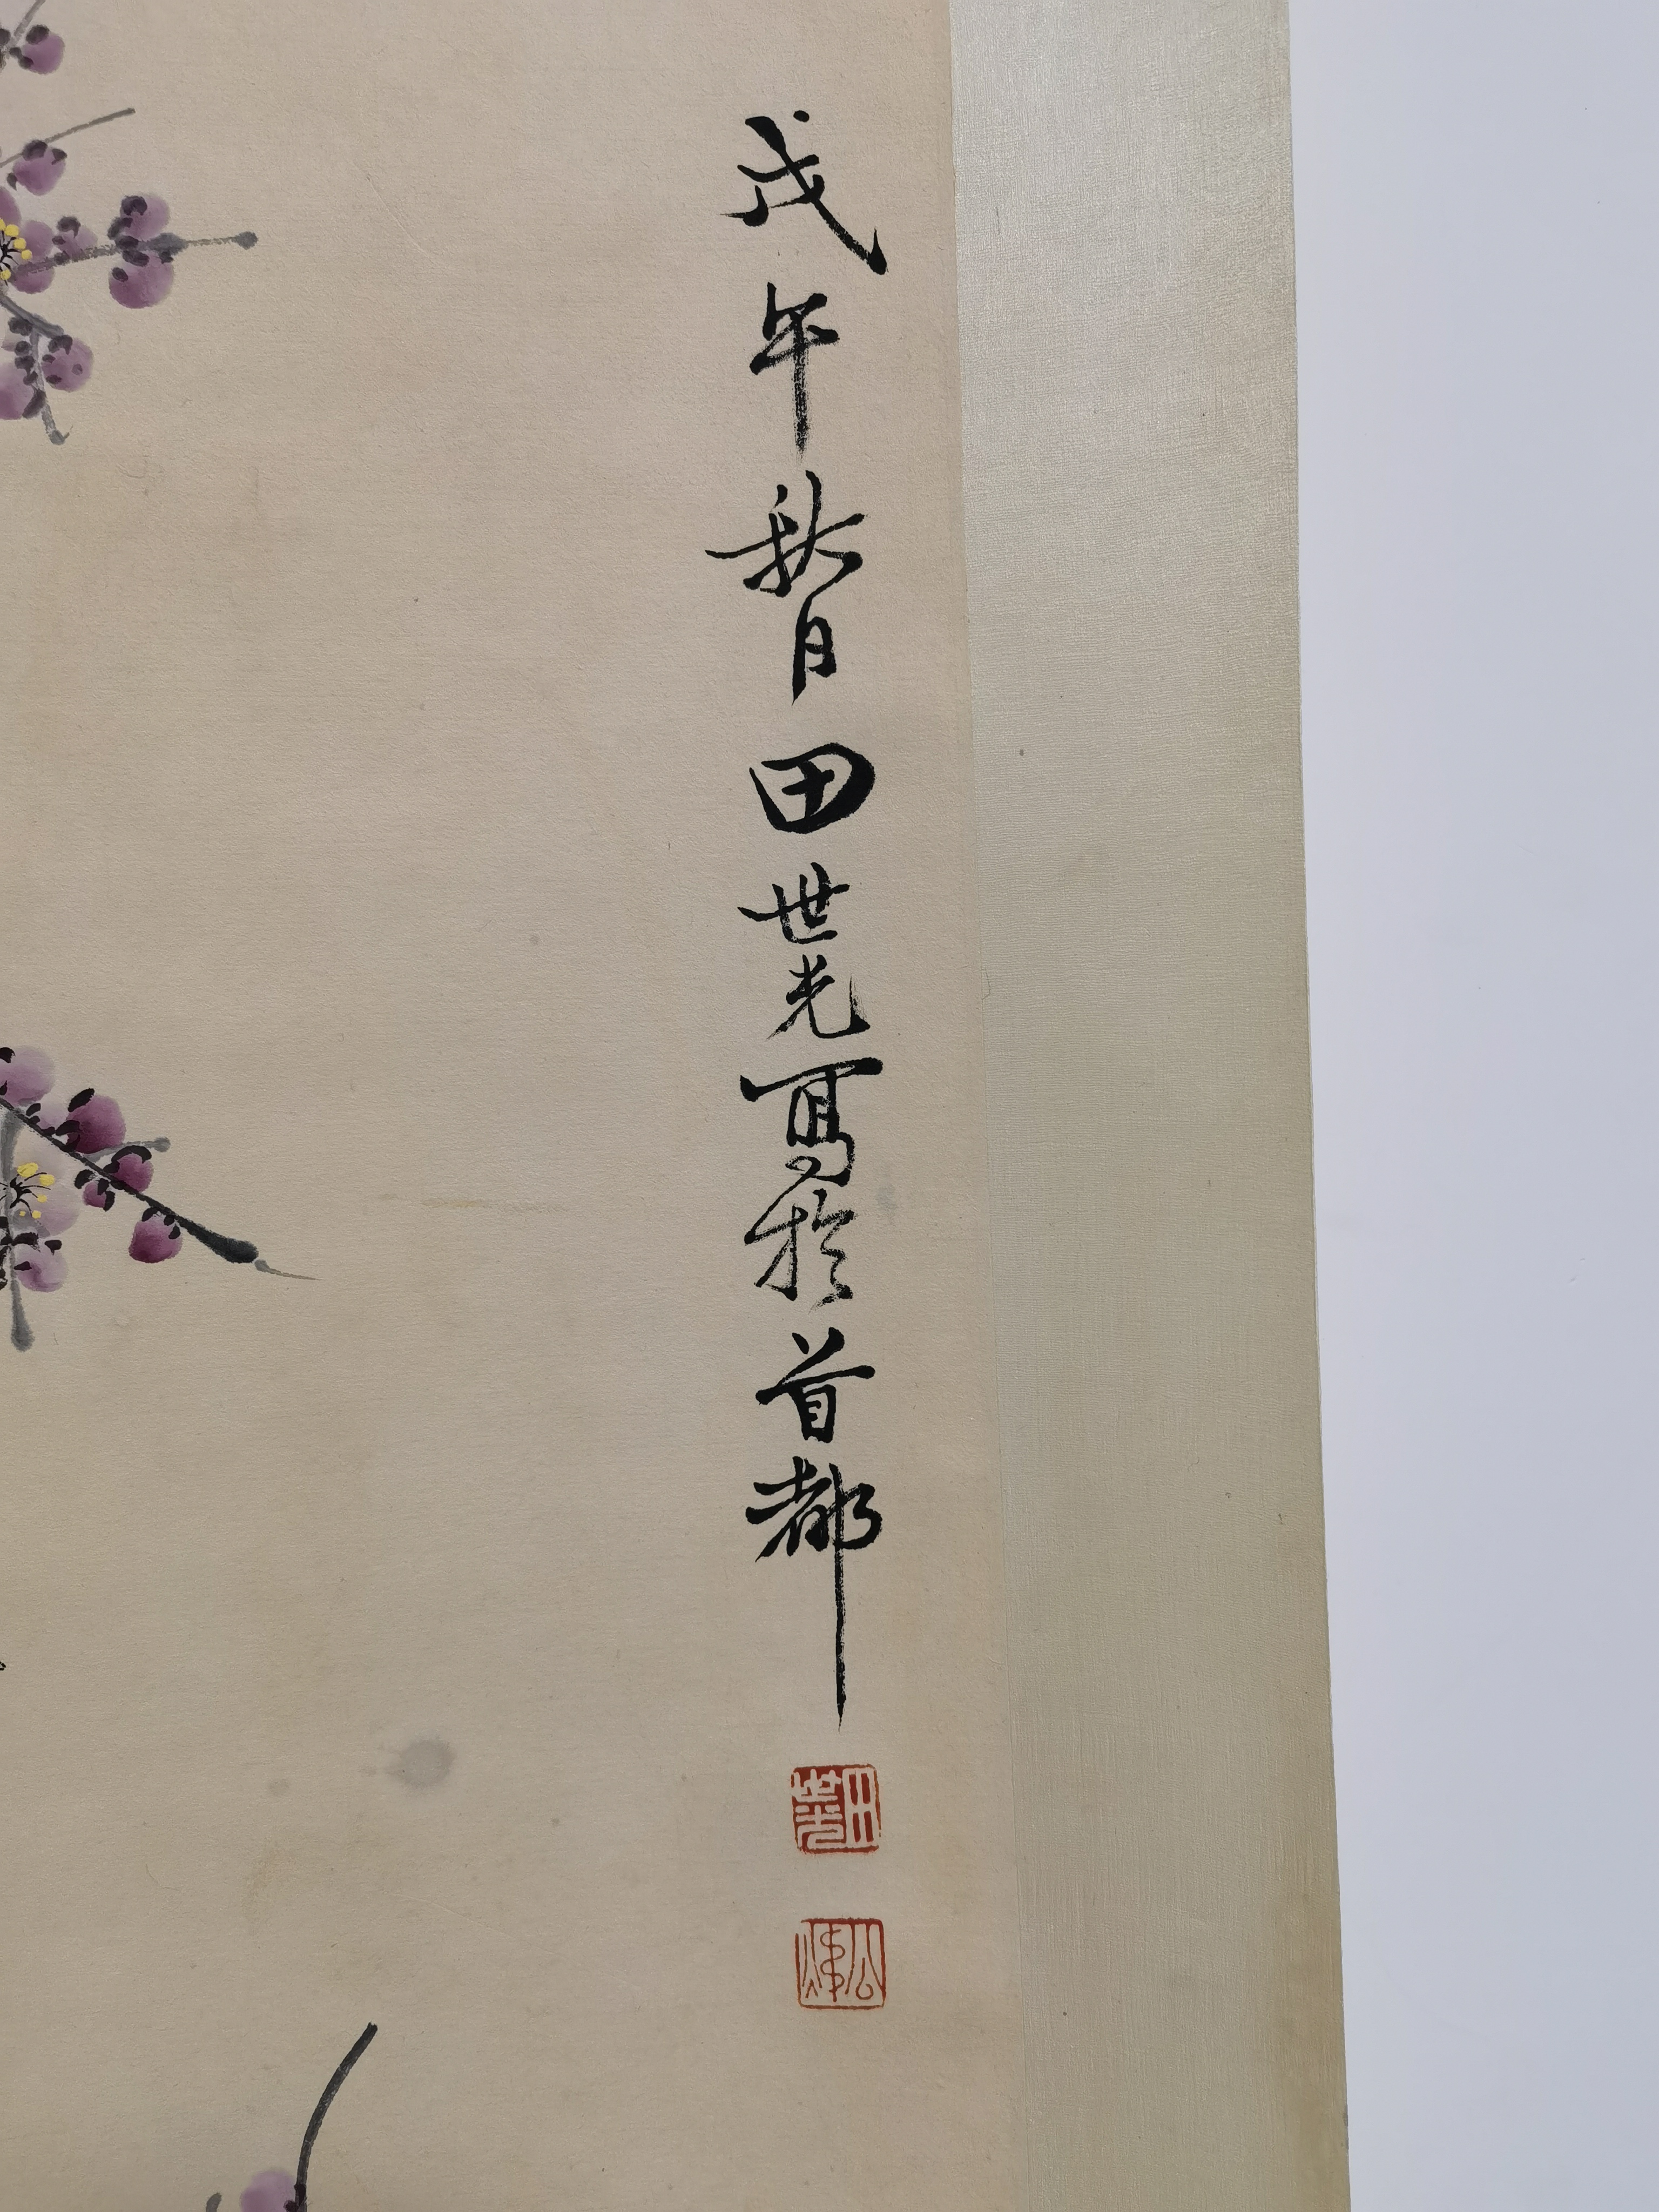 戊午秋月田世光寫於首都
田世光
公煒